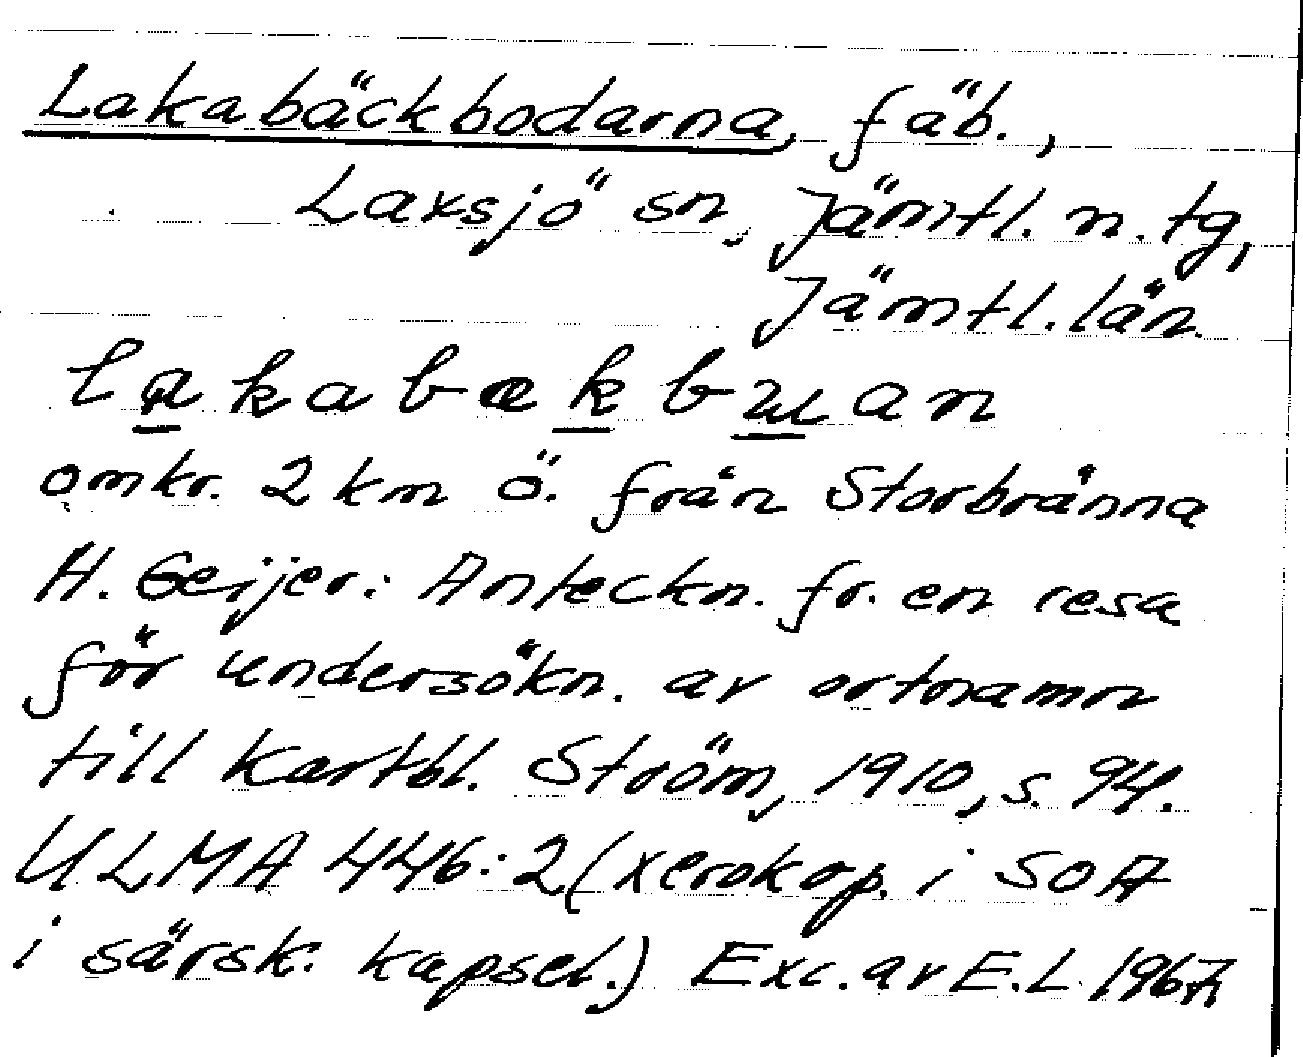 Lakabäckbodarna, fäb.,
Laxsjö sn, Jämtl. n. tg,
Jämtl. län.
lakabækbuan
omkr. 2 km ö. från Storbränna
H. Geijer: Anteckn. fr. en resa
för undersökn. av ortnamn
till kartbl. Ström, 1910, s. 94.
ULMA 446:2 (xerokop. i SOA
i särsk. kapsel.) Exc. av E.L. 1967